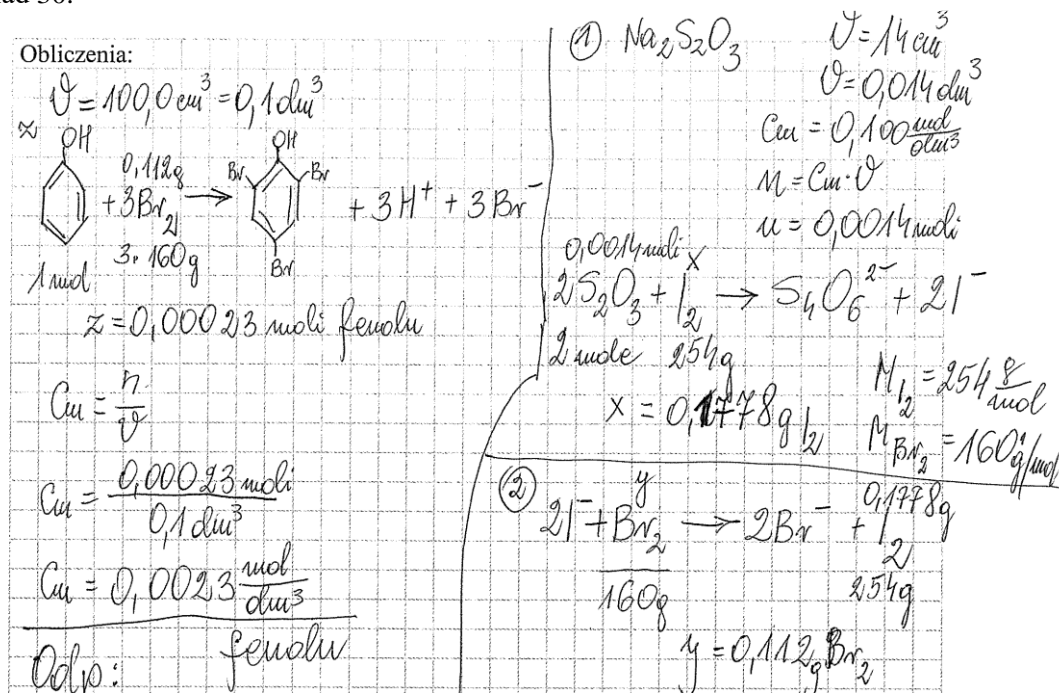 Obliczenia:
V = 100,0 cm³ = 0,1 dm³
z
OH
0,112g
+ 3Br₂ →
3 · 160g
1 mol
OH
Br
Br
Br
+ 3H⁺ + 3Br⁻
z = 0,00023 moli fenolu
Cm = n/V
Cm = 0,00023 moli / 0,1 dm³
Cm = 0,0023 mol/dm³
fenolu
Odp:
① Na₂S₂O₃
V = 14 cm³
V = 0,014 dm³
Cm = 0,100 mol/dm³
n = Cm · V
n = 0,0014 moli
0,0014 moli x
2S₂O₃ + I₂ → S₄O₆²⁻ + 2I⁻
2 mole 254g
x = 0,1778 g I₂
M I₂ = 254 g/mol
M Br₂ = 160 g/mol
② y 0,1778g
2I⁻ + Br₂ → 2Br⁻ + I₂
160g 254g
y = 0,112 g Br₂